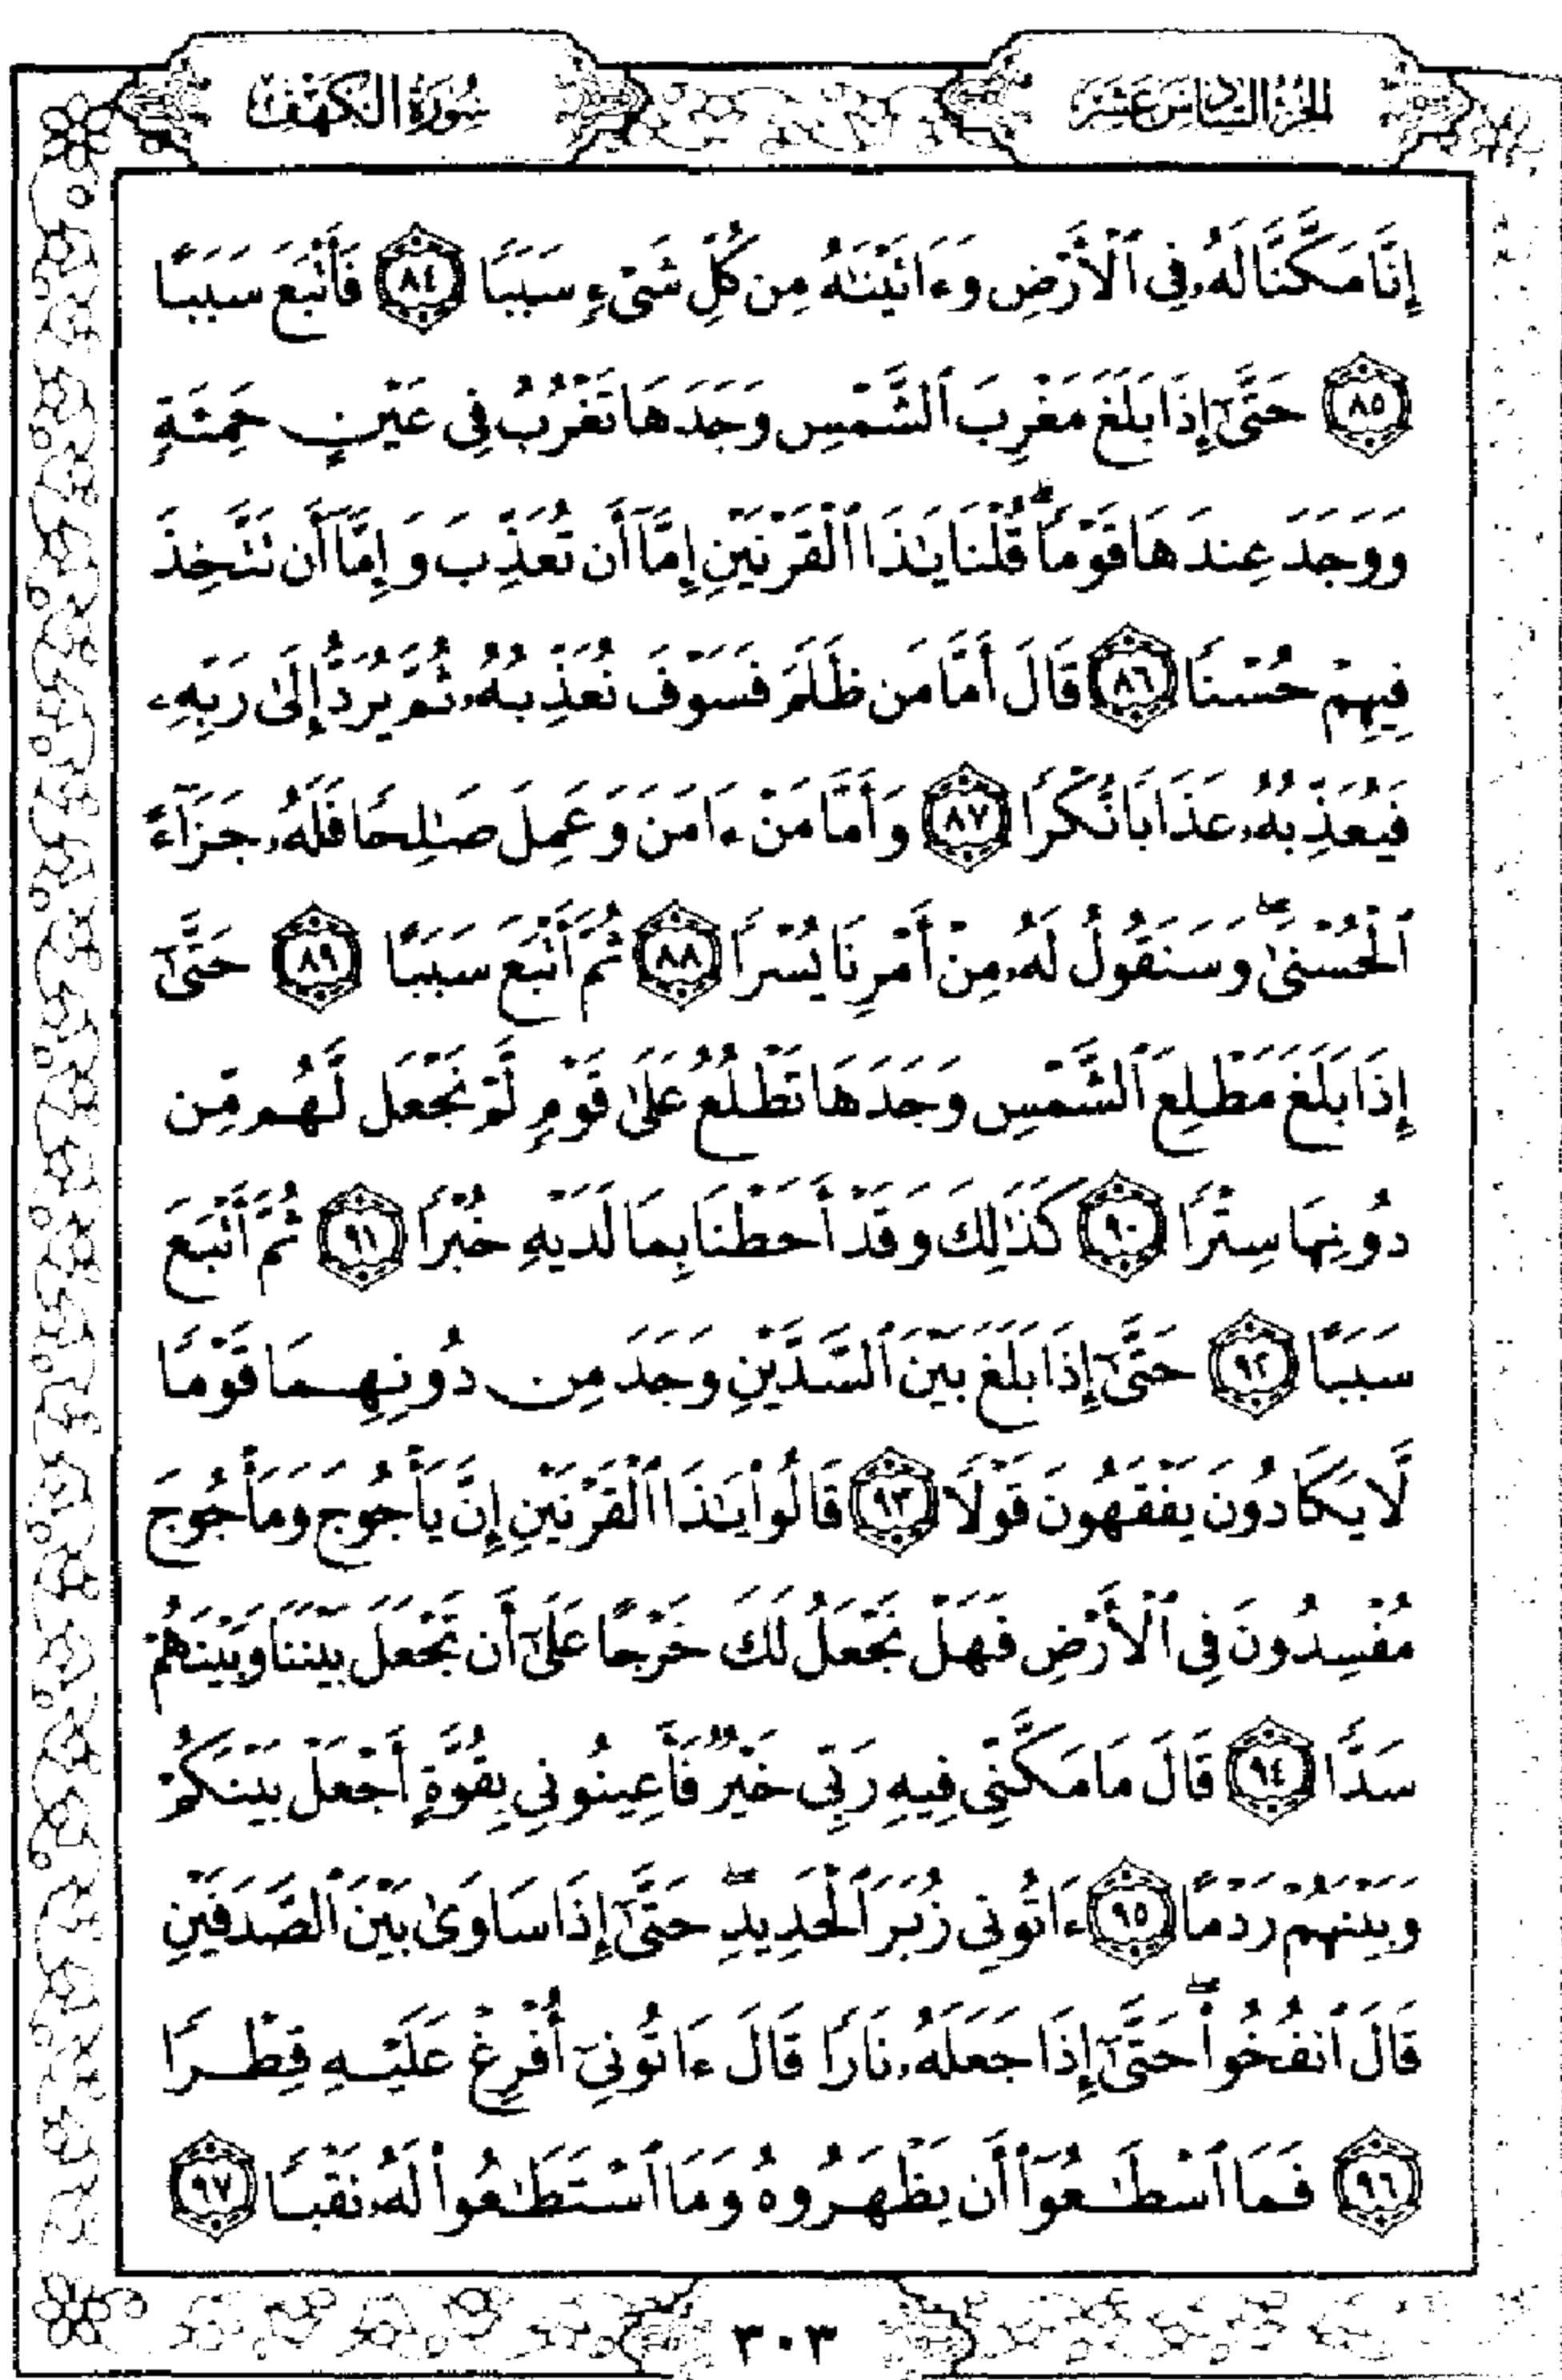 الجزء السادس عشر
سورة الكهف
إِنَّا مَكَّنَّا لَهُۥ فِى ٱلْأَرْضِ وَءَاتَيْنَٰهُ مِن كُلِّ شَىْءٍ سَبَبًا ٨٤ فَأَتْبَعَ سَبَبًا
٨٥ حَتَّىٰٓ إِذَا بَلَغَ مَغْرِبَ ٱلشَّمْسِ وَجَدَهَا تَغْرُبُ فِى عَيْنٍ حَمِئَةٍ
وَوَجَدَ عِندَهَا قَوْمًا ۗ قُلْنَا يَٰذَا ٱلْقَرْنَيْنِ إِمَّآ أَن تُعَذِّبَ وَإِمَّآ أَن تَتَّخِذَ
فِيهِمْ حُسْنًا ٨٦ قَالَ أَمَّا مَن ظَلَمَ فَسَوْفَ نُعَذِّبُهُۥ ثُمَّ يُرَدُّ إِلَىٰ رَبِّهِۦ
فَيُعَذِّبُهُۥ عَذَابًا نُّكْرًا ٨٧ وَأَمَّا مَنْ ءَامَنَ وَعَمِلَ صَٰلِحًا فَلَهُۥ جَزَآءً
ٱلْحُسْنَىٰ ۖ وَسَنَقُولُ لَهُۥ مِنْ أَمْرِنَا يُسْرًا ٨٨ ثُمَّ أَتْبَعَ سَبَبًا ٨٩ حَتَّىٰٓ
إِذَا بَلَغَ مَطْلِعَ ٱلشَّمْسِ وَجَدَهَا تَطْلُعُ عَلَىٰ قَوْمٍ لَّمْ نَجْعَل لَّهُم مِّن
دُونِهَا سِتْرًا ٩٠ كَذَٰلِكَ وَقَدْ أَحَطْنَا بِمَا لَدَيْهِ خُبْرًا ٩١ ثُمَّ أَتْبَعَ
سَبَبًا ٩٢ حَتَّىٰٓ إِذَا بَلَغَ بَيْنَ ٱلسَّدَّيْنِ وَجَدَ مِن دُونِهِمَا قَوْمًا
لَّا يَكَادُونَ يَفْقَهُونَ قَوْلًا ٩٣ قَالُوا۟ يَٰذَا ٱلْقَرْنَيْنِ إِنَّ يَأْجُوجَ وَمَأْجُوجَ
مُفْسِدُونَ فِى ٱلْأَرْضِ فَهَلْ نَجْعَلُ لَكَ خَرْجًا عَلَىٰٓ أَن تَجْعَلَ بَيْنَنَا وَبَيْنَهُمْ
سَدًّا ٩٤ قَالَ مَا مَكَّنِّى فِيهِ رَبِّى خَيْرٌ فَأَعِينُونِى بِقُوَّةٍ أَجْعَلْ بَيْنَكُمْ
وَبَيْنَهُمْ رَدْمًا ٩٥ ءَاتُونِى زُبَرَ ٱلْحَدِيدِ ۖ حَتَّىٰٓ إِذَا سَاوَىٰ بَيْنَ ٱلصَّدَفَيْنِ
قَالَ ٱنفُخُوا۟ ۖ حَتَّىٰٓ إِذَا جَعَلَهُۥ نَارًا قَالَ ءَاتُونِىٓ أُفْرِغْ عَلَيْهِ قِطْرًا
٩٦ فَمَا ٱسْطَٰعُوٓا۟ أَن يَظْهَرُوهُ وَمَا ٱسْتَطَٰعُوا۟ لَهُۥ نَقْبًا ٩٧
٣٠٣